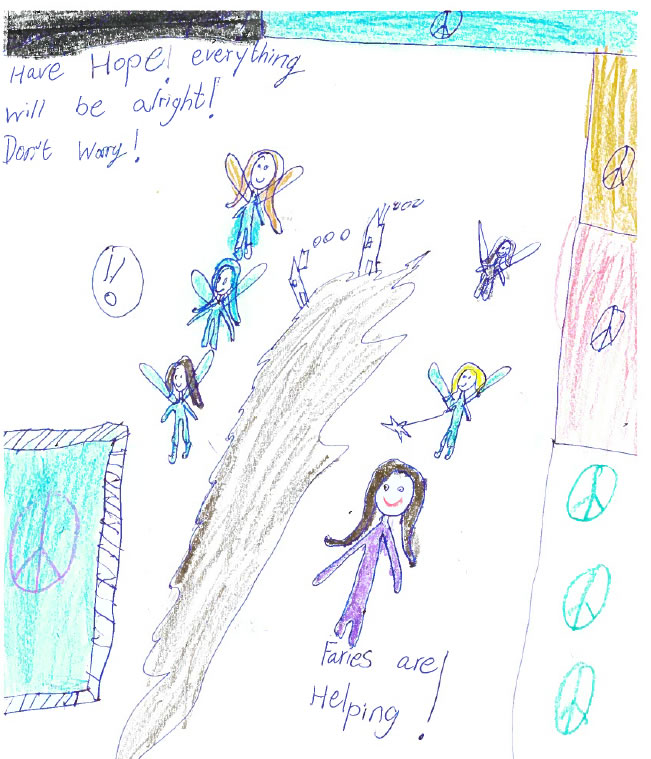 Have Hope! everything
will be alright!
Don't Worry!
!!
Faries are
Helping!